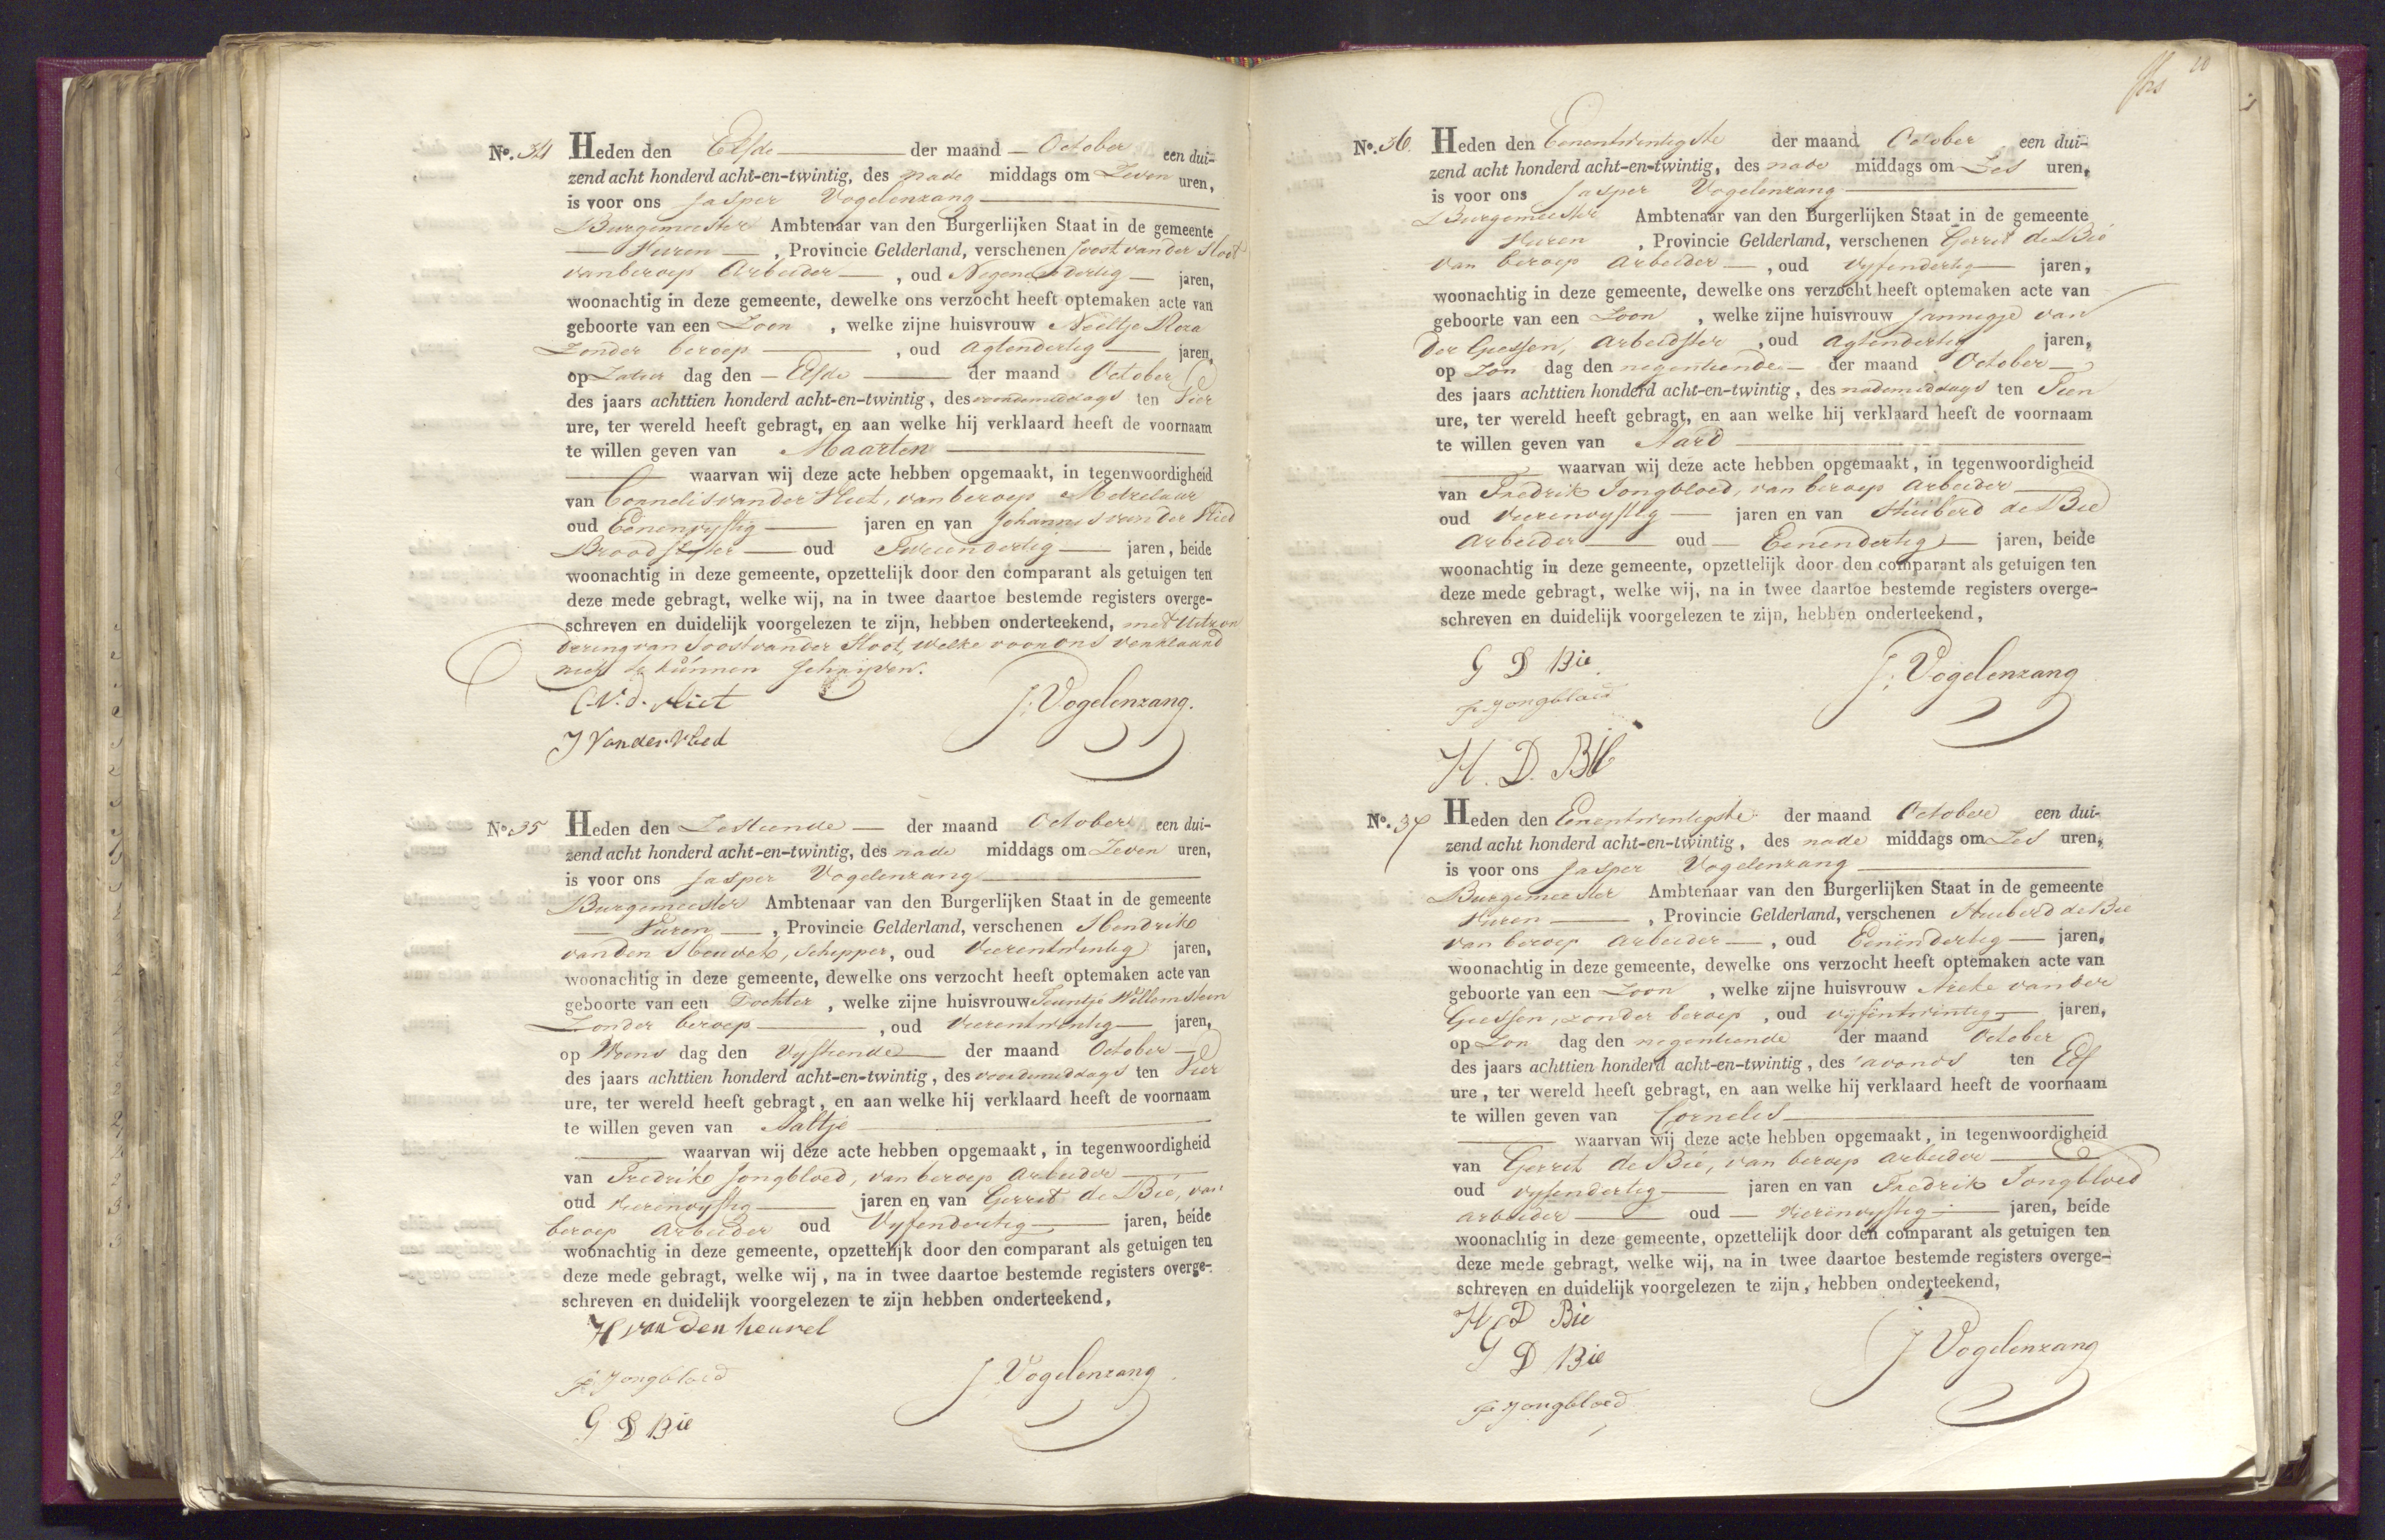 No. 34 Heden den Elfde der maand October een dui-
zend acht honderd acht-en-twintig, des nade middags om Zeven uren,
is voor ons Jasper Vogelenzang
Burgemeester Ambtenaar van den Burgerlijken Staat in de gemeente
Vuren, Provincie Gelderland, verschenen Joost van der Sloot
van beroep Arbeider, oud Negenendertig jaren,
woonachtig in deze gemeente, dewelke ons verzocht heeft optemaken acte van
geboorte van een Zoon, welke zijne huisvrouw Neeltje Roza
Zonder beroep, oud Agtendertig jaren,
op Zatur dag den Elfde der maand October
des jaars achttien honderd acht-en-twintig, des voordemiddags ten Vier
ure, ter wereld heeft gebragt, en aan welke hij verklaard heeft de voornaam
te willen geven van Maarten
waarvan wij deze acte hebben opgemaakt, in tegenwoordigheid
van Cornelis van der Vliet, van beroep Metzelaar
oud Eenenvyftig jaren en van Johannis van der Vlied
oud Tweeendertig jaren, beide
woonachtig in deze gemeente, opzettelijk door den comparant als getuigen ten
deze mede gebragt, welke wij, na in twee daartoe bestemde registers overge-
schreven en duidelijk voorgelezen te zijn, hebben onderteekend, met Uitzon
dering van Joost van der Sloot, welke voor ons verklaard
niet te kunnen schrijven.
C. V. d. Vliet
J. Vogelenzang.
J Van der Vlied
No. 35 Heden den Zestiende der maand October een dui-
zend acht honderd acht-en-twintig, des nade middags om Zeven uren,
is voor ons Jasper Vogelenzang
Burgemeester Ambtenaar van den Burgerlijken Staat in de gemeente
Vuren, Provincie Gelderland, verschenen Hendrik
van den Heuvel, Schipper, oud Vierentwintig jaren,
woonachtig in deze gemeente, dewelke ons verzocht heeft optemaken acte van
geboorte van een Dochter, welke zijne huisvrouw Teuntje Willemstein
Zonder beroep, oud Vierentwintig jaren,
op Woens dag den Vyftiende der maand October
des jaars achttien honderd acht-en-twintig, des voordemiddags ten Vier
ure, ter wereld heeft gebragt, en aan welke hij verklaard heeft de voornaam
te willen geven van Aaltje
waarvan wij deze acte hebben opgemaakt, in tegenwoordigheid
van Fredrik Jongbloed, van beroep Arbeider
oud Vierenvyftig jaren en van Gerrit de Bie, van
beroep Arbeider oud Vyfendertig jaren, beide
woonachtig in deze gemeente, opzettelijk door den comparant als getuigen ten
deze mede gebragt, welke wij, na in twee daartoe bestemde registers overge-
schreven en duidelijk voorgelezen te zijn hebben onderteekend,
H van den heuvel
F. Jongbloed
J. Vogelenzang
G D Bie
20
No. 36. Heden den Eenentwintigste der maand October een dui-
zend acht honderd acht-en-twintig, des nade middags om Zes uren,
is voor ons Jasper Vogelenzang
Burgemeester Ambtenaar van den Burgerlijken Staat in de gemeente
Vuren, Provincie Gelderland, verschenen Gerrit de Bie
van beroep Arbeider, oud Vyfendertig jaren,
woonachtig in deze gemeente, dewelke ons verzocht heeft optemaken acte van
geboorte van een Zoon, welke zijne huisvrouw Jannigje van
der Giessen, Arbeidster, oud Agtendertig jaren,
op Zon dag den negentiende der maand October
des jaars achttien honderd acht-en-twintig, des nademiddags ten Tien
ure, ter wereld heeft gebragt, en aan welke hij verklaard heeft de voornaam
te willen geven van Aard
waarvan wij deze acte hebben opgemaakt, in tegenwoordigheid
van Fredrik Jongbloed, van beroep Arbeider
oud Vierenvyftig jaren en van Huiberd de Bie
Arbeider oud Eenendertig jaren, beide
woonachtig in deze gemeente, opzettelijk door den comparant als getuigen ten
deze mede gebragt, welke wij, na in twee daartoe bestemde registers overge-
schreven en duidelijk voorgelezen te zijn, hebben onderteekend,
G D Bie.
J. Vogelenzang
F. Jongbloed
H. D. Bie
No. 37 Heden den Eenentwintigste der maand October een dui-
zend acht honderd acht-en-twintig, des nade middags om Zes uren,
is voor ons Jasper Vogelenzang
Burgemeester Ambtenaar van den Burgerlijken Staat in de gemeente
Vuren, Provincie Gelderland, verschenen Huiberd de Bie
van beroep Arbeider, oud Eenendertig jaren,
woonachtig in deze gemeente, dewelke ons verzocht heeft optemaken acte van
geboorte van een Zoon, welke zijne huisvrouw van der
Giessen, zonder beroep, oud vyfentwintig jaren,
op Zon dag den negentiende der maand October
des jaars achttien honderd acht-en-twintig, des 'avonds ten Elf
ure, ter wereld heeft gebragt, en aan welke hij verklaard heeft de voornaam
te willen geven van Cornelis
waarvan wij deze acte hebben opgemaakt, in tegenwoordigheid
van Gerrit de Bie, van beroep Arbeider
oud vyfendertig jaren en van Fredrik Jongbloed
Arbeider oud Vierenvyftig jaren, beide
woonachtig in deze gemeente, opzettelijk door den comparant als getuigen ten
deze mede gebragt, welke wij, na in twee daartoe bestemde registers overge-
schreven en duidelijk voorgelezen te zijn, hebben onderteekend,
H D Bie
G D Bie
J Vogelenzang
F. Jongbloed